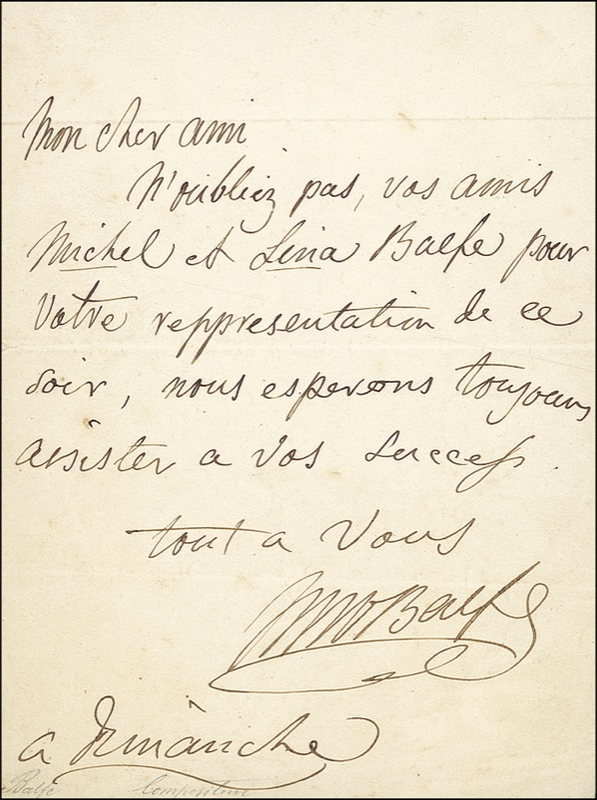 Mon cher ami
N'oubliez pas, vos amis
Michel et Lina Balfe pour
Votre reppresentation de ce
soir, nous esperons toujours
assister a vos success.
tout a Vous
MWBalfe
a Dimanche
Balfe Compositeur